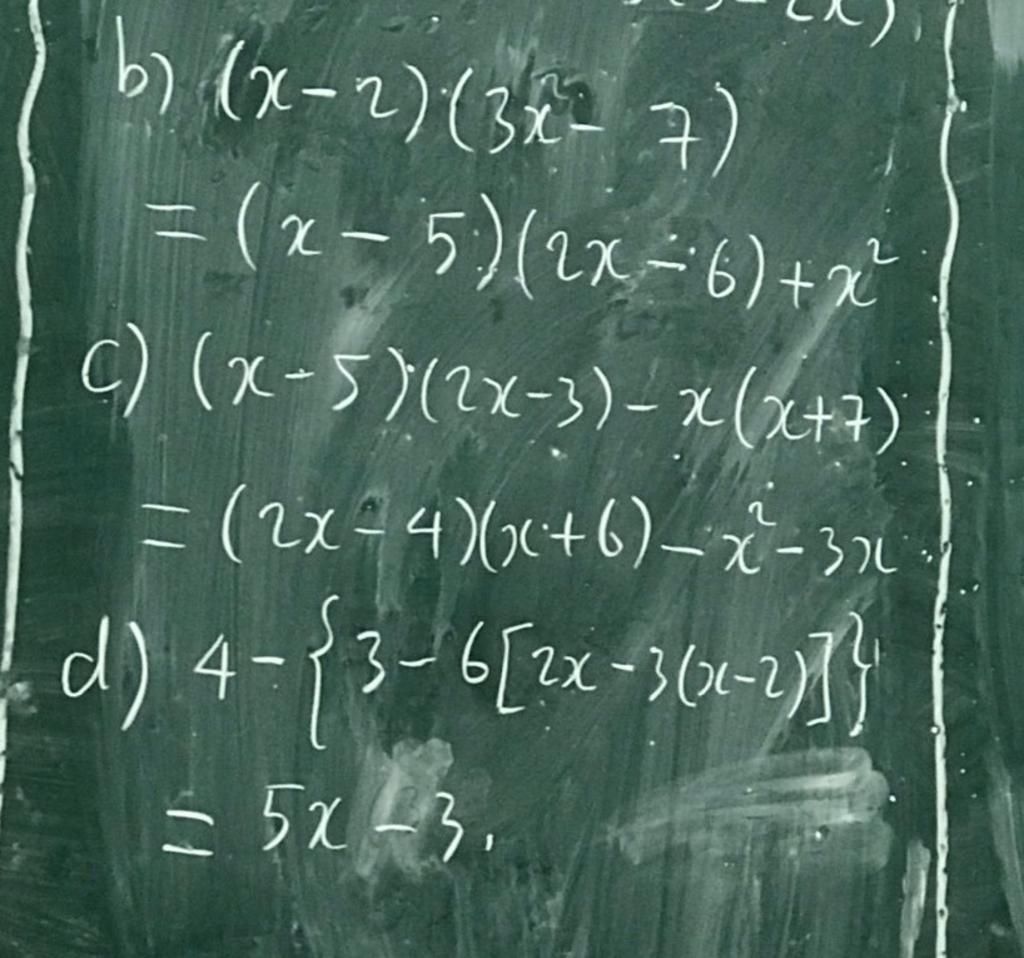 b) (x-2)(3x-7)
= (x-5)(2x-6)+x²
c) (x-5)(2x-3)-x(x+7)
= (2x-4)(x+6)-x²-3x
d) 4-{3-6[2x-3(x-2)]}
= 5x-3.